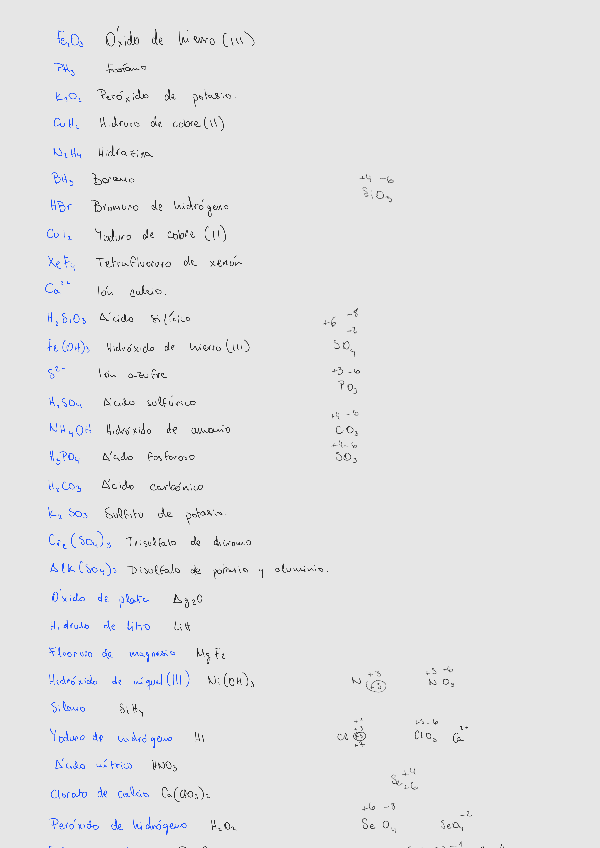 Fe₂O₃ Óxido de hierro (III)
PH₃ fosfano
K₂O₂ Peróxido de potasio.
CuH₂ Hidruro de cobre (II)
N₂H₄ Hidrazina
BH₃ Borano
+4 -6
SiO₃
HBr Bromuro de hidrógeno
CuI₂ Yoduro de cobre (II)
XeF₄ Tetrafluoruro de xenón
Ca²⁺ Ión calcio.
H₂SiO₃ Ácido silícico
+6 -8
-2
SO₄
Fe(OH)₃ Hidróxido de hierro (III)
S²⁻ Ión azufre
+3 -6
PO₃
H₂SO₄ Ácido sulfúrico
NH₄OH Hidróxido de amonio
+4 -6
CO₃
H₃PO₄ Ácido fosforoso
+4 -6
SO₃
H₂CO₃ Ácido carbónico
K₂SO₃ Sulfito de potasio.
Cr₂(SO₄)₃ Trisulfato de dicromo
AlK(SO₄)₂ Disulfato de potasio y aluminio.
Óxido de plata Ag₂O
Hidruro de litio LiH
Fluoruro de magnesio MgF₂
Hidróxido de níquel (III) Ni(OH)₃
N +3
+5 -6
NO₃
Silano SiH₄
Yoduro de hidrógeno HI
Cl +1 +3 +5 +7
+5 -6
ClO₃ Ca²⁺
Ácido nítrico HNO₃
Clorato de calcio Ca(ClO₃)₂
Se +4 +6
Peróxido de hidrógeno H₂O₂
+6 -8
SeO₄ SeO₄⁻²